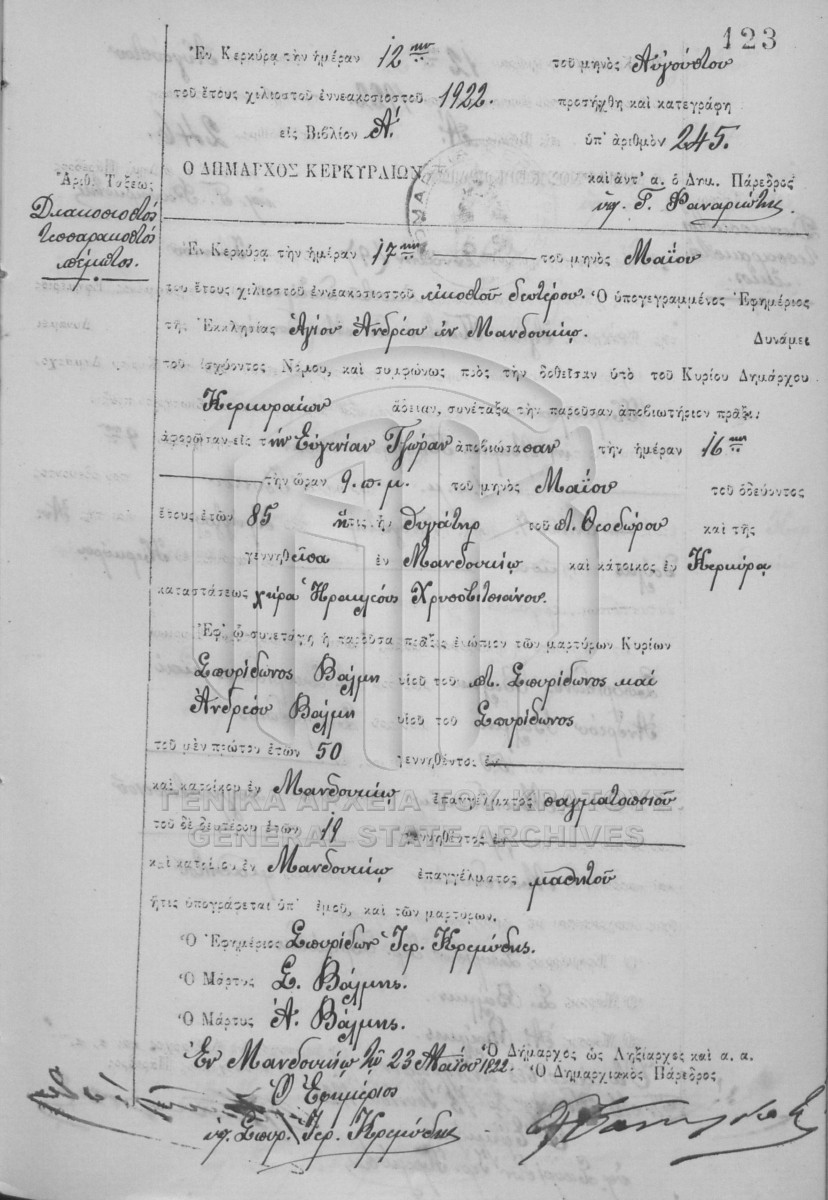 123
Ἐν Κερκύρᾳ τὴν ἡμέραν 12ην τοῦ μηνὸς Αὐγούστου
τοῦ ἔτους χιλιοστοῦ ἐννεακοσιοστοῦ 1922. προσήχθη καὶ κατεγράφη
εἰς Βιβλίον Α΄ ὑπ' ἀριθμὸν 245.
Ο ΔΗΜΑΡΧΟΣ ΚΕΡΚΥΡΑΙΩΝ
καὶ ἀντ' α. ὁ Δημ. Πάρεδρος
ὑπ. Γ. Φαναριώτης
Ἀριθ. Τάξεως
Διακοσιοστός
τεσσαρακοστός
πέμπτος.
Ἐν Κερκύρᾳ τὴν ἡμέραν 17ην τοῦ μηνὸς Μαΐου
τοῦ ἔτους χιλιοστοῦ ἐννεακοσιοστοῦ εἰκοστοῦ δευτέρου. Ὁ ὑπογεγραμμένος Ἐφημέριος
τῆς Ἐκκλησίας Ἁγίου Ἀνδρέου ἐν Μανδουκίῳ. Δυνάμει
τοῦ ἰσχύοντος Νόμου, καὶ συμφώνως πρὸς τὴν δοθεῖσαν ὑπὸ τοῦ Κυρίου Δημάρχου
Κερκυραίων ἄδειαν, συνέταξα τὴν παροῦσαν ἀποβιωτήριον πρᾶξιν
ἀφορῶσαν εἰς τὴν Εὐγενίαν Τζώραν ἀποβιώσασαν τὴν ἡμέραν 16ην
τὴν ὥραν 9. π. μ. τοῦ μηνὸς Μαΐου τοῦ ὁδεύοντος
ἔτους ἐτῶν 85 ἥτις ἦν θυγάτηρ τοῦ π. Θεοδώρου καὶ τῆς
γεννηθεῖσα ἐν Μανδουκίῳ καὶ κάτοικος ἐν Κερκύρᾳ
καταστάσεως χήρα Ἡρακλέους Χρυσοβιτσιάνου.
Ἐφ' ᾧ συνετάγη ἡ παροῦσα πρᾶξις ἐνώπιον τῶν μαρτύρων Κυρίων
Σπυρίδωνος Βάλμη υἱοῦ τοῦ π. Σπυρίδωνος καὶ
Ἀνδρέου Βάλμη υἱοῦ τοῦ Σπυρίδωνος
τοῦ μὲν πρώτου ἐτῶν 50 γεννηθέντος ἐν
καὶ κατοίκου ἐν Μανδουκίῳ ἐπαγγέλματος σαγματοποιοῦ
ΓΕΝΙΚΑ ΑΡΧΕΙΑ ΤΟΥ ΚΡΑΤΟΥΣ
τοῦ δὲ δευτέρου ἐτῶν 19 γεννηθέντος ἐν
GENERAL STATE ARCHIVES
καὶ κατοίκου ἐν Μανδουκίῳ ἐπαγγέλματος μαθητοῦ
ἥτις ὑπογράφεται ὑπ' ἐμοῦ, καὶ τῶν μαρτύρων.
Ὁ Ἐφημέριος Σπυρίδων Ἱερ. Κρεμύδης.
Ὁ Μάρτυς Σ. Βάλμης.
Ὁ Μάρτυς Ἀ. Βάλμης.
Ἐν Μανδουκίῳ τῇ 23 Μαΐου 1922. Ὁ Δήμαρχος ὡς Ληξίαρχος καὶ α. α.
Ὁ Ἐφημέριος Ὁ Δημαρχιακὸς Πάρεδρος
ὑπ. Σπυρ. Ἱερ. Κρεμύδης